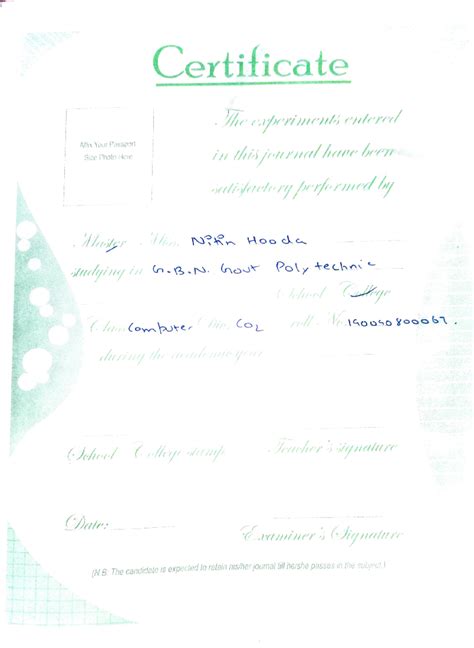 Certificate
Affix Your Passport
Size Photo Here
The experiments entered
in this journal have been
satisfactory performed by
Master Miss Nitin Hooda
studying in G.B.N. Govt Polytechnic
School College
Class Computer Div. CO2 roll No. 190090800067.
during the academic year
School College stamp
Teacher's signature
Date:
Examiner's Signature
(N.B. The candidate is expected to retain his/her journal till he/she passes in the subject.)